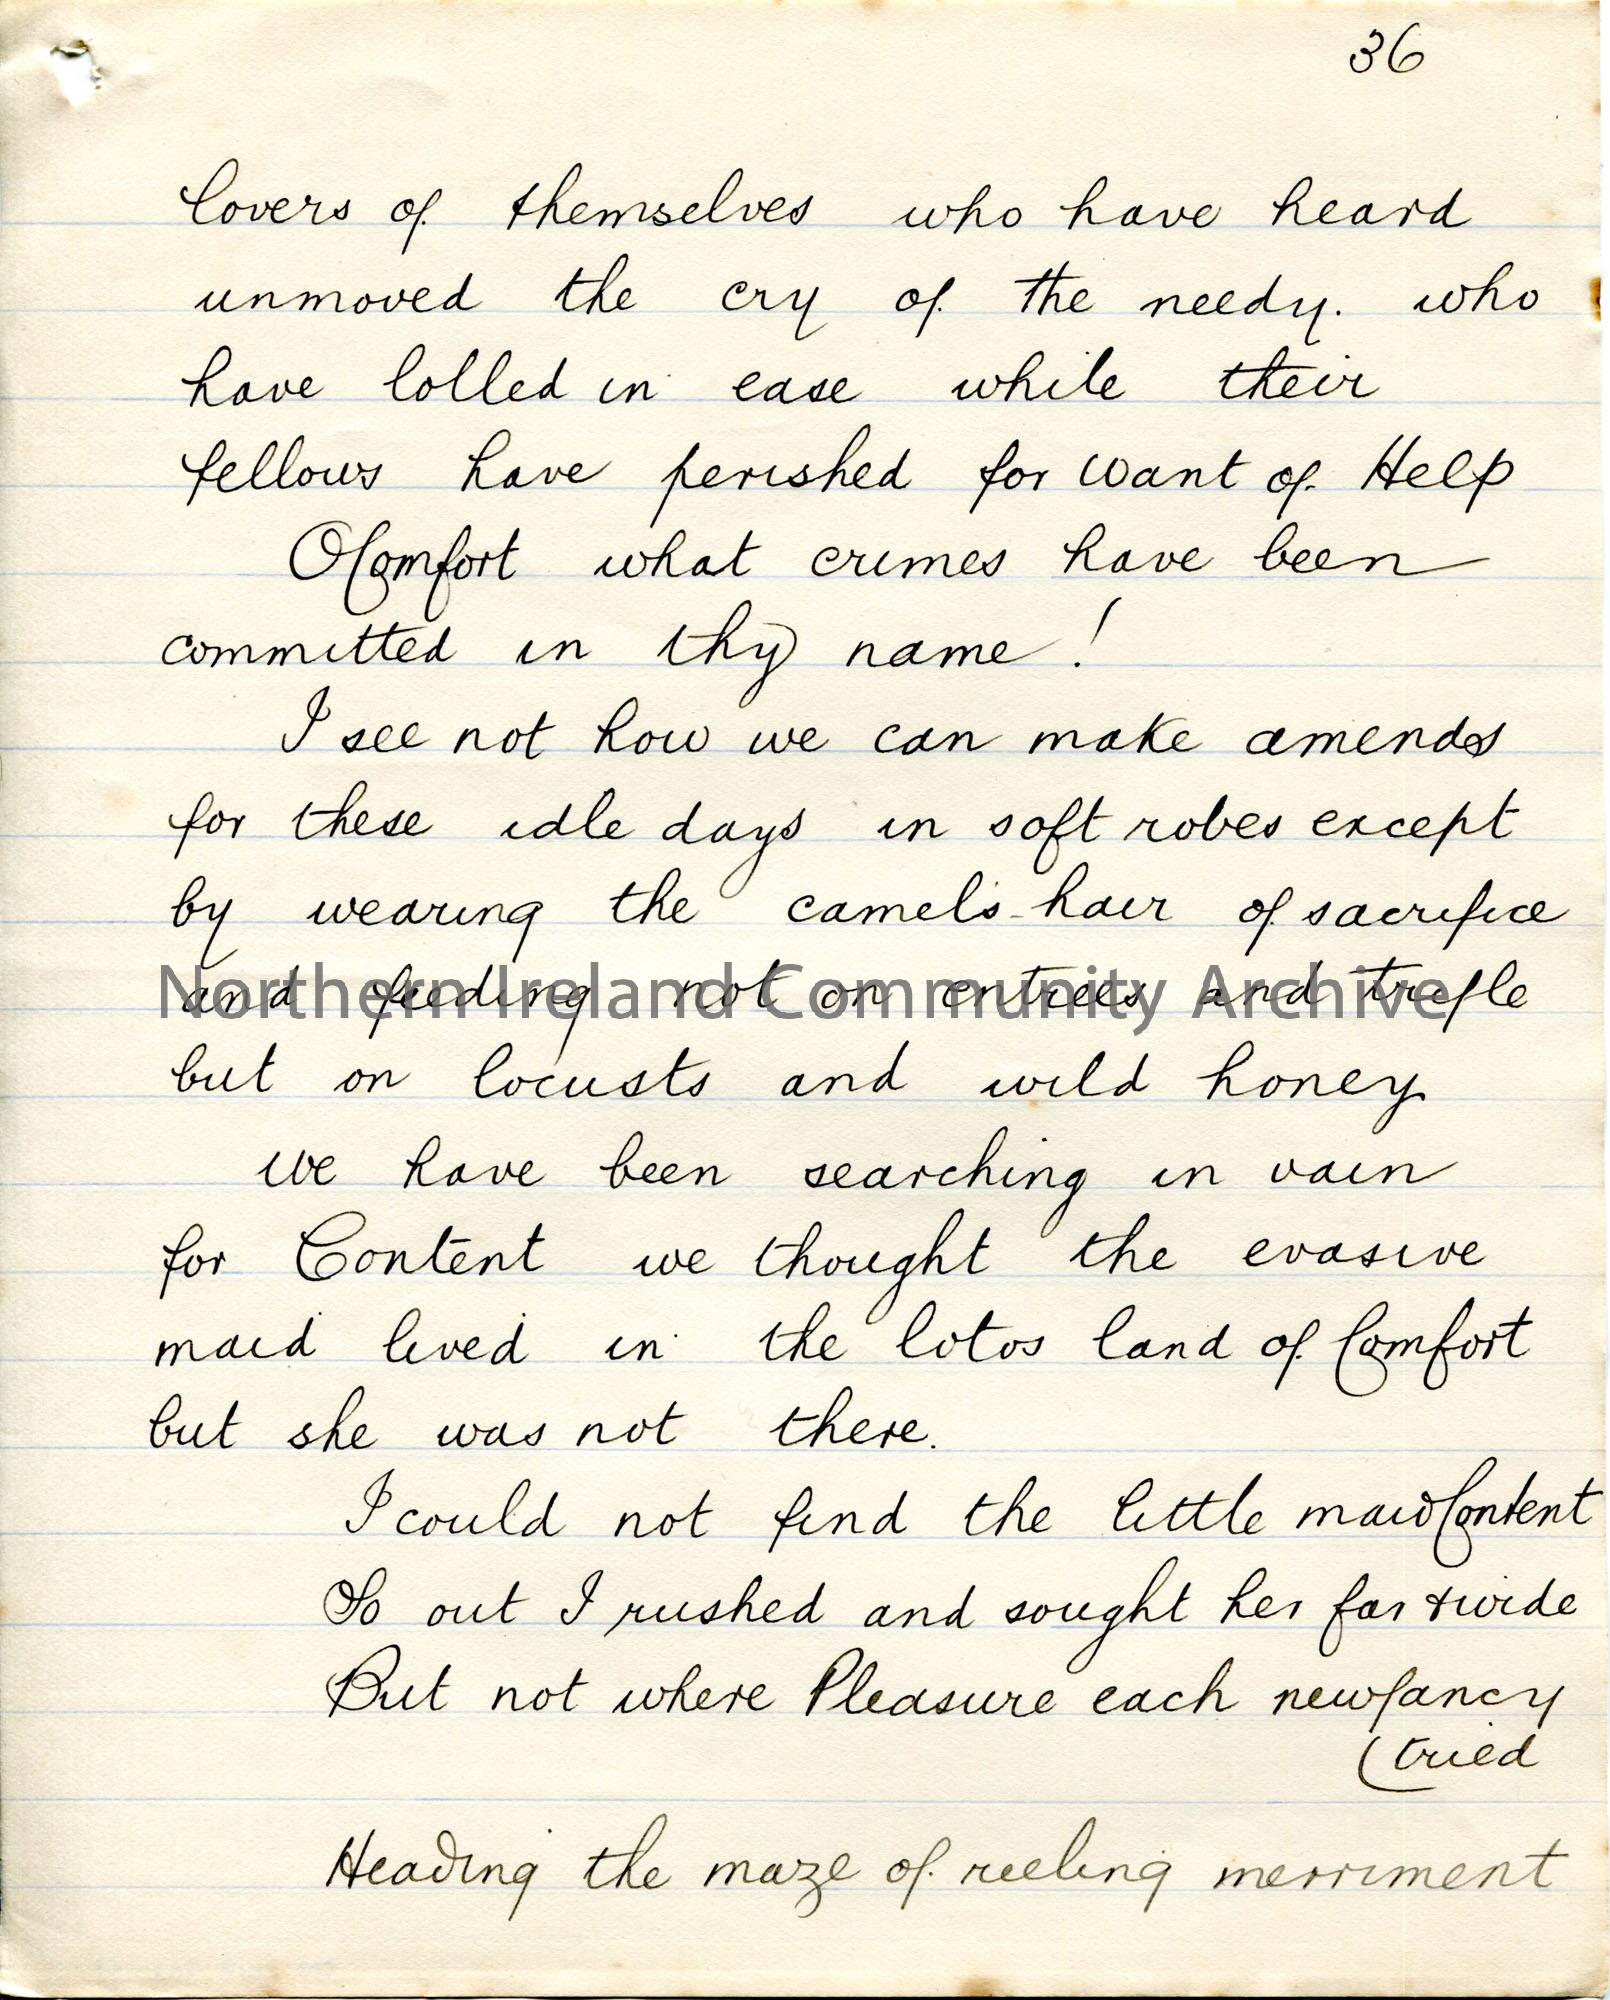 36
lovers of themselves who have heard
unmoved the cry of the needy. who
have lolled in ease while their
fellows have perished for want of Help
O Comfort what crimes have been
committed in thy name!
I see not how we can make amends
for these idle days in soft robes except
by wearing the camel's-hair of sacrifice
and feeding not on entrees and trifle
Northern Ireland Community Archive
but on locusts and wild honey.
we have been searching in vain
for Content we thought the evasive
maid lived in the lotos land of Comfort
but she was not there.
I could not find the little maid Content
So out I rushed and sought her far & wide
But not where Pleasure each new fancy
(tried
Heading the maze of reeling merriment